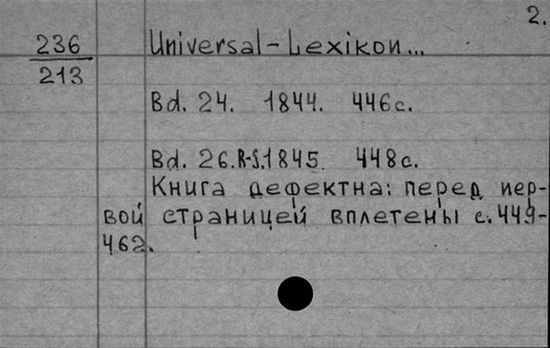 2.
236 Universal-Lexikon...
213
Bd. 24. 1844. 446с.
Bd. 26.R-S.1845. 448с.
Книга дефектна: перед пер-
вой страницей вплетены с. 449-
462.